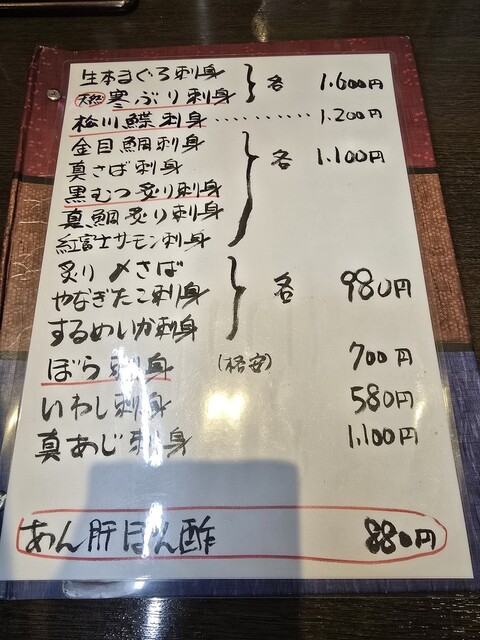 生本まぐろ刺身
天然 寒ぶり刺身 各 1.600円
松川鰈刺身 ・・・・・・・・・・ 1.200円
金目鯛刺身
真さば刺身 各 1.100円
黒むつ炙り刺身
真鯛炙り刺身
紅富士サーモン刺身
炙り〆さば
やなぎたこ刺身 各 980円
するめいか刺身
ぼら刺身 (格安) 700円
いわし刺身 580円
真あじ刺身 1.100円
あん肝ぽん酢 880円